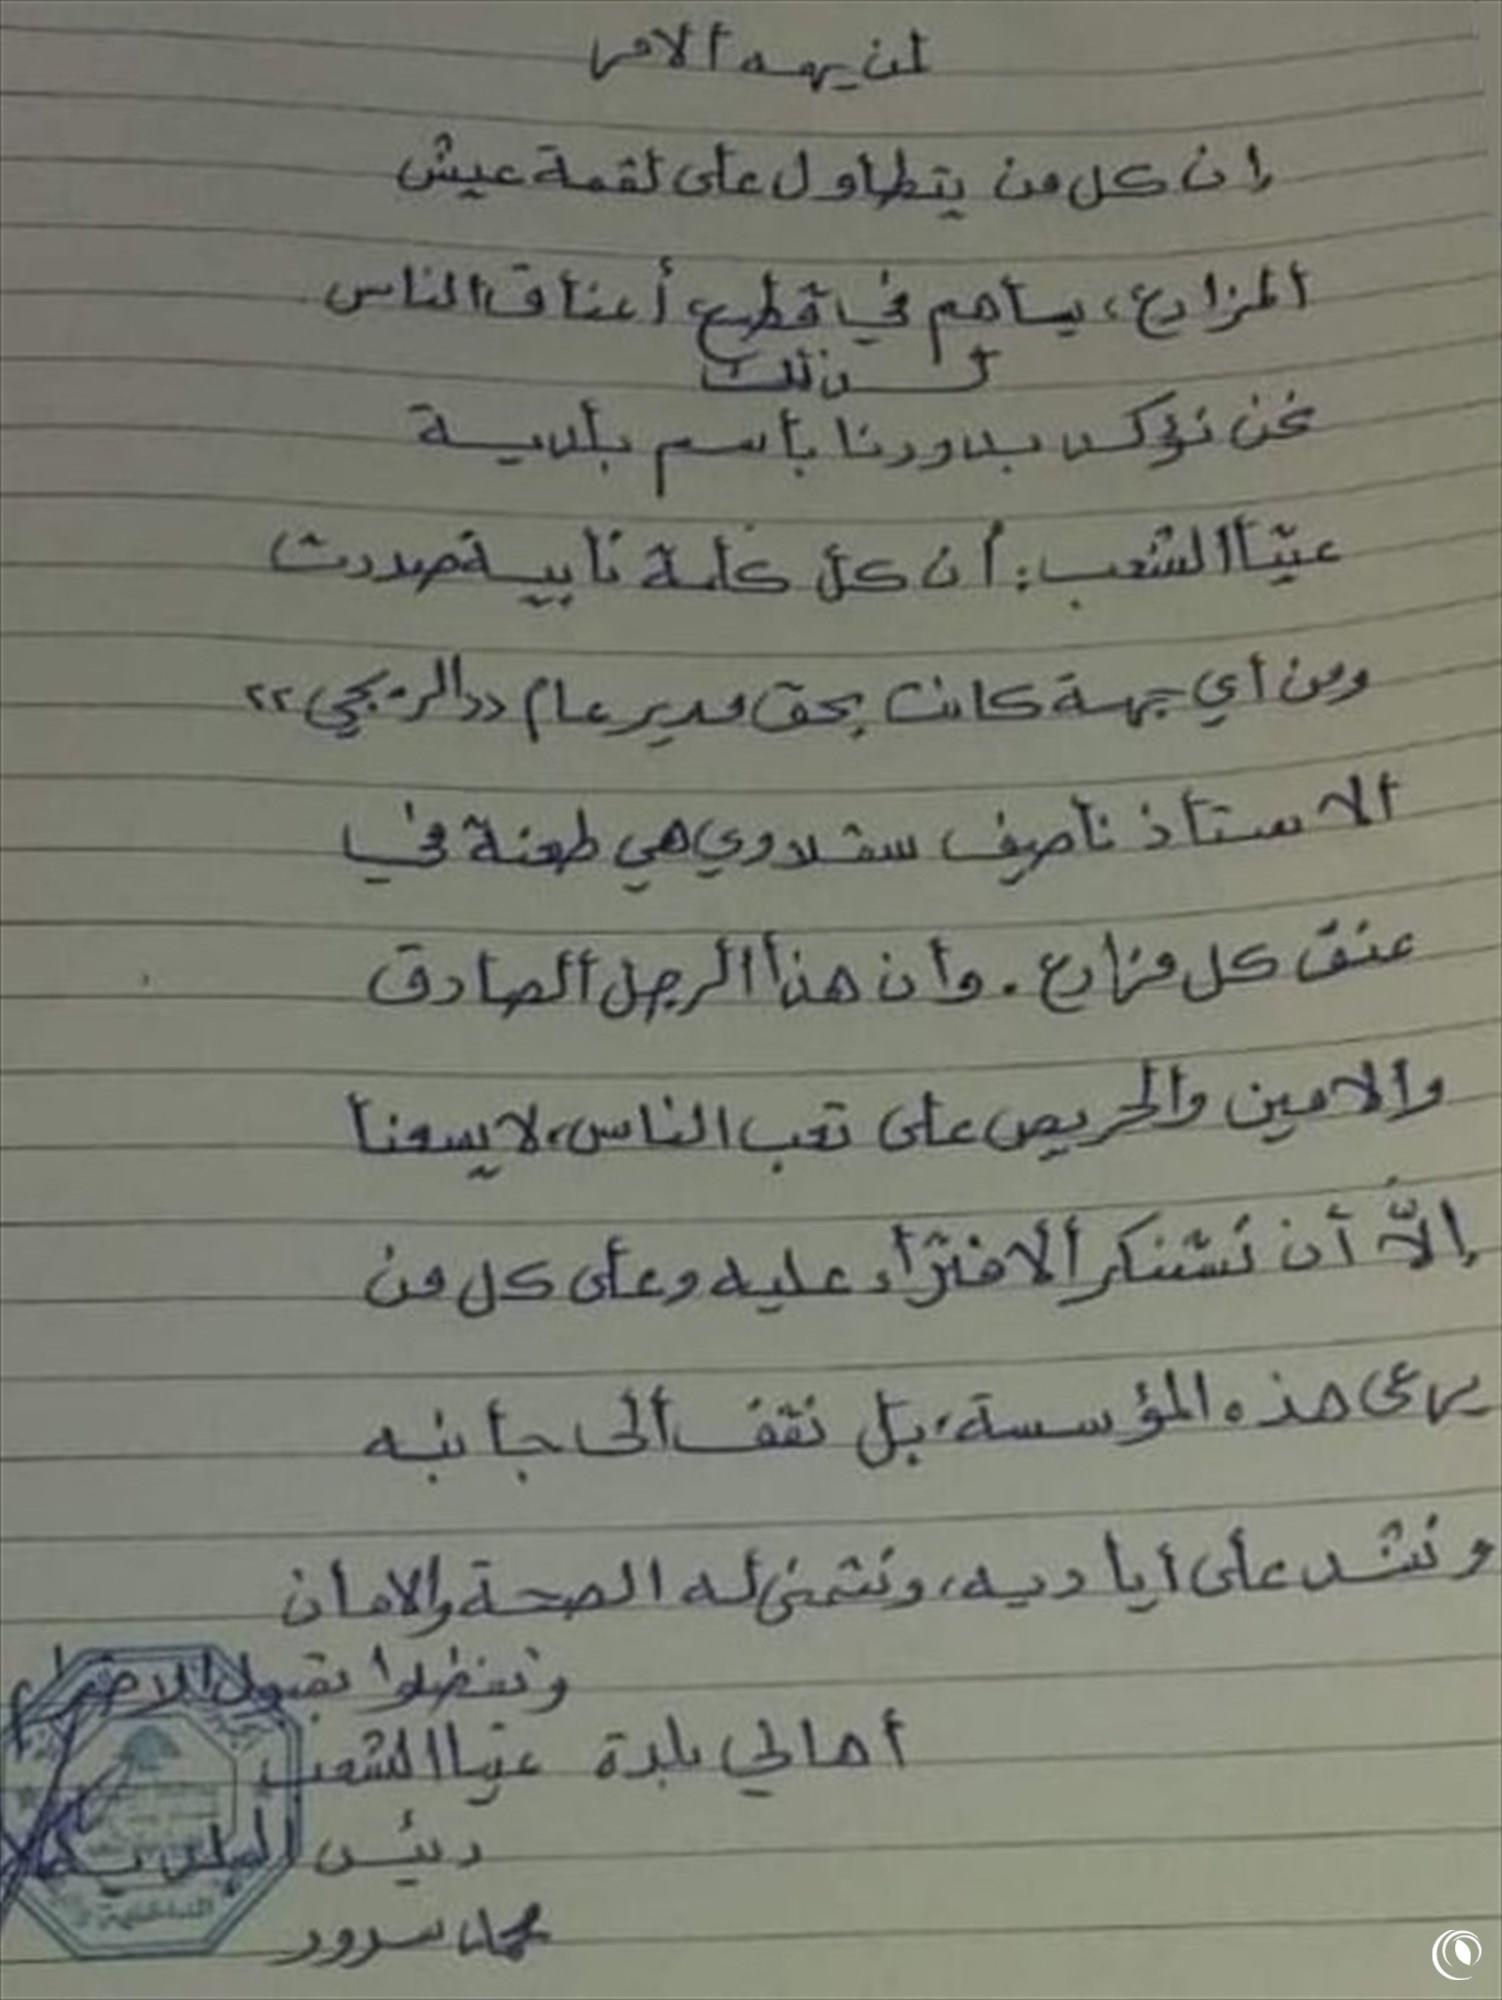 لمن يهمه الأمر
إن كل من يتطاول على لقمة عيش
المزارع، يساهم في قطع أعناق الناس
لذلك
نحن نؤكد بدورنا باسم بلدية
عيتا الشعب: أن كل كلمة نابية صدرت
ومن أي جهة كانت بحق مدير عام "الريجي"
الاستاذ ناصيف سقلاوي هي طعنة في
عنق كل مزارع. وأن هذا الرجل الصادق
والامين والحريص على تعب الناس، لا يسعنا
إلّا أن نستنكر ألافتراء عليه وعلى كل من
يرعى هذه المؤسسة، بل نقف ألى جانبه
ونشد على أياديه، ونتمنى له الصحة والامان
وتفضلوا بقبول الاحترام
أهالي بلدة عيتا الشعب
رئيس البلدية
محمد سرور
الداخلية